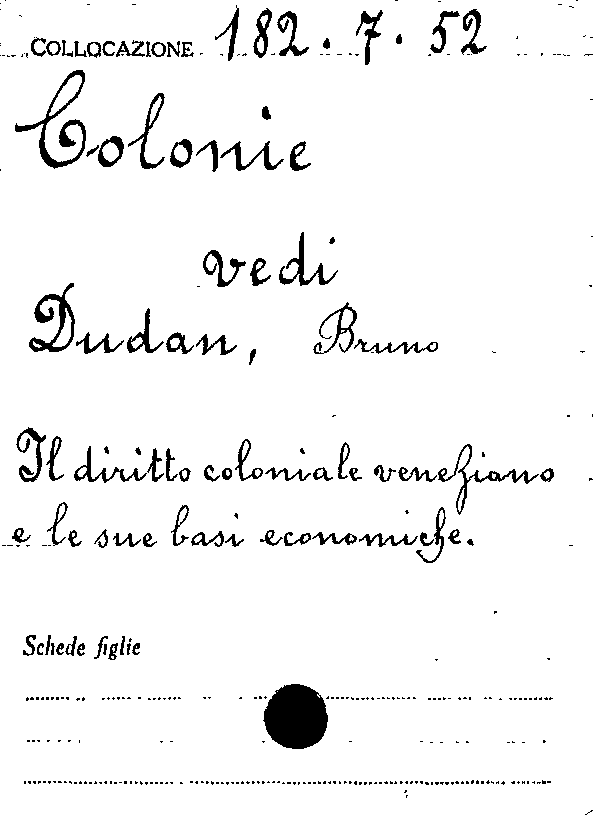 COLLOCAZIONE 182.7.52
Colonie
vedi
Dudan, Bruno
Il diritto coloniale veneziano
e le sue basi economiche.
Schede figlie